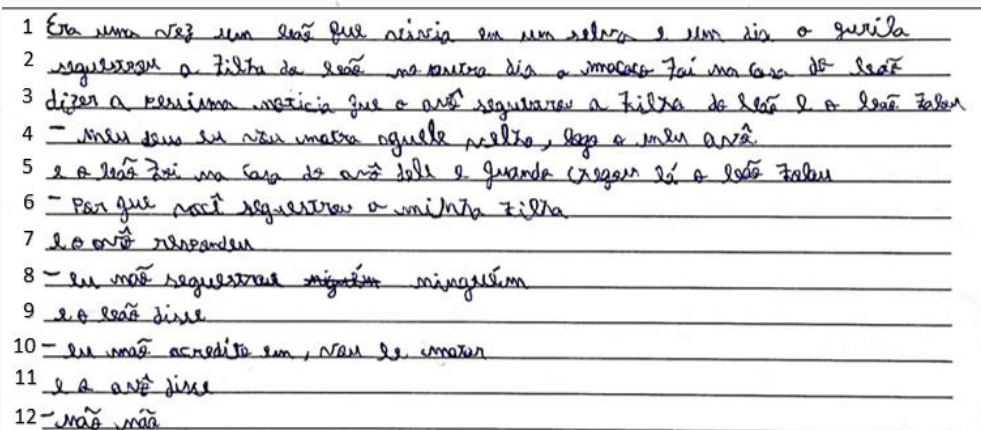 1 Era uma vez um leão que vivia em um selva e um dia o gurila
2 sequestrou a filha do leão no outro dia o macaco foi na casa do leão
3 dizer a pessima noticia que o avô sequestrou a filha do leão e o leão falou
4 – meu deus eu vou matra aquele velho, logo o meu avô.
5 e o leão foi na casa do avô dele e quando chegou lá o leão falou
6 – Por que você sequestrou a minha filha
7 e o avô respondeu
8 – eu não sequestrei ninguém
9 e o leão disse
10 – eu não acredito em, vou le matar
11 e o avô disse
12 – não não